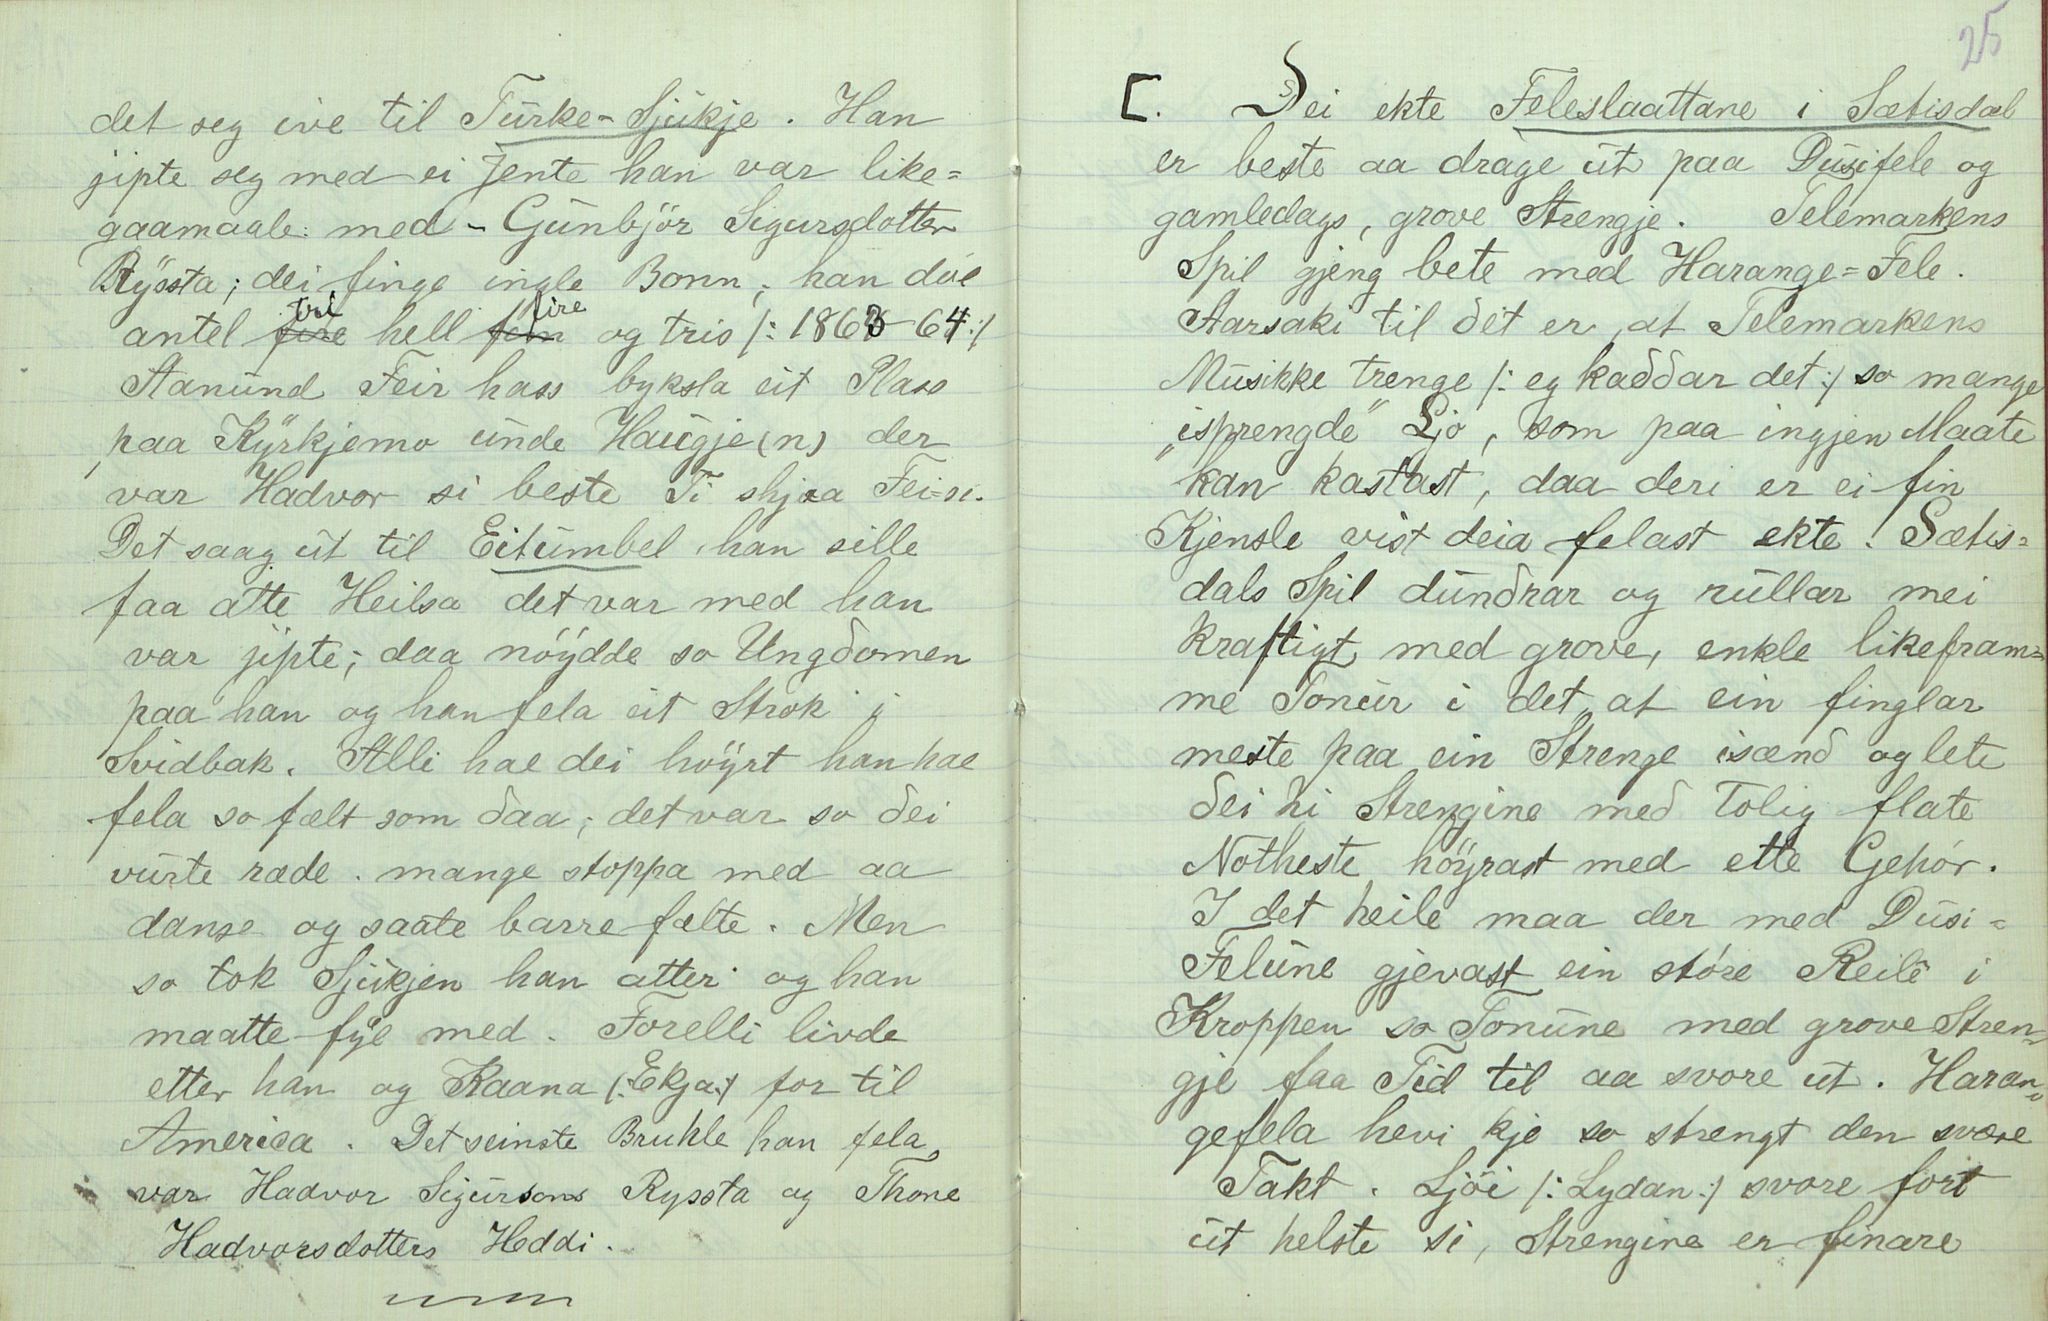 det seg ive til Turke-Sjukje. Han
jipte seg med ei Jente han var like=
gaamaale med - Gunbjör Sigursdotter
Ryssta; dei finge ingle Bonn; han döe
tri fire
antel fire hell fem og tris /: 1863-64 :/
Aanund Feir hass byksla eit Plass
paa Kyrkjemo unde Haugje(n) der
var Hadvor si beste Ti shjaa Fei-si.
Det saag ut til Eitumbel han sille
faa atte Heilsa det var med han
var jipte; daa nöydde so Ungdomen
paa han og han fela eit Strok i
Svidbak. Alli hae dei höyrt han hae
fela so fælt som daa; det var so dei
vurte ræde. mange stoppa med aa
danse og saate barre fælte. Men
so tok Sjukjen han atter og han
maatte fye med. Forelli livde
etter han og Raana (: Ekja :) for til
America. Det seinste Bruhle han fela
var Hadvor Sigursons Ryssta og Thone
Hadvorsdotters Heddi.
25
[. Dei ekte Feleslaattane i Sætisdal
er beste aa drage ut paa Dusifele og
gamledags, grove Strengje. Telemarkens
Spil gjeng bete med Harange=Fele.
Aarsaki til det er, at Telemarkens
Musikke trenge /: eg kaddar det :/ so mange
„isprengde" Ljo, som paa ingjen Maate
kan kastast, daa deri er ei fin
Kjensle vist deia felast ekte. Sætis=
dals Spil dundrar og rullar mei
kraftigt med grove, enkle likefram=
me Tonur i det at ein finglar
meste paa ein Strenge isænd og lete
dei hi Strengine med tolig flate
Notheste höyrast med ette Gehör.
I det heile maa der med Dusi=
Felune gjevast ein störe Reile i
Kroppen so Tonune med grove Stren=
gje faa Tid til aa svore ut. Haran=
gefela hevi kje so strengt den svære
Takt. Ljöi /: Lydan :/ svore fort
ut helste si, Strengine er finare